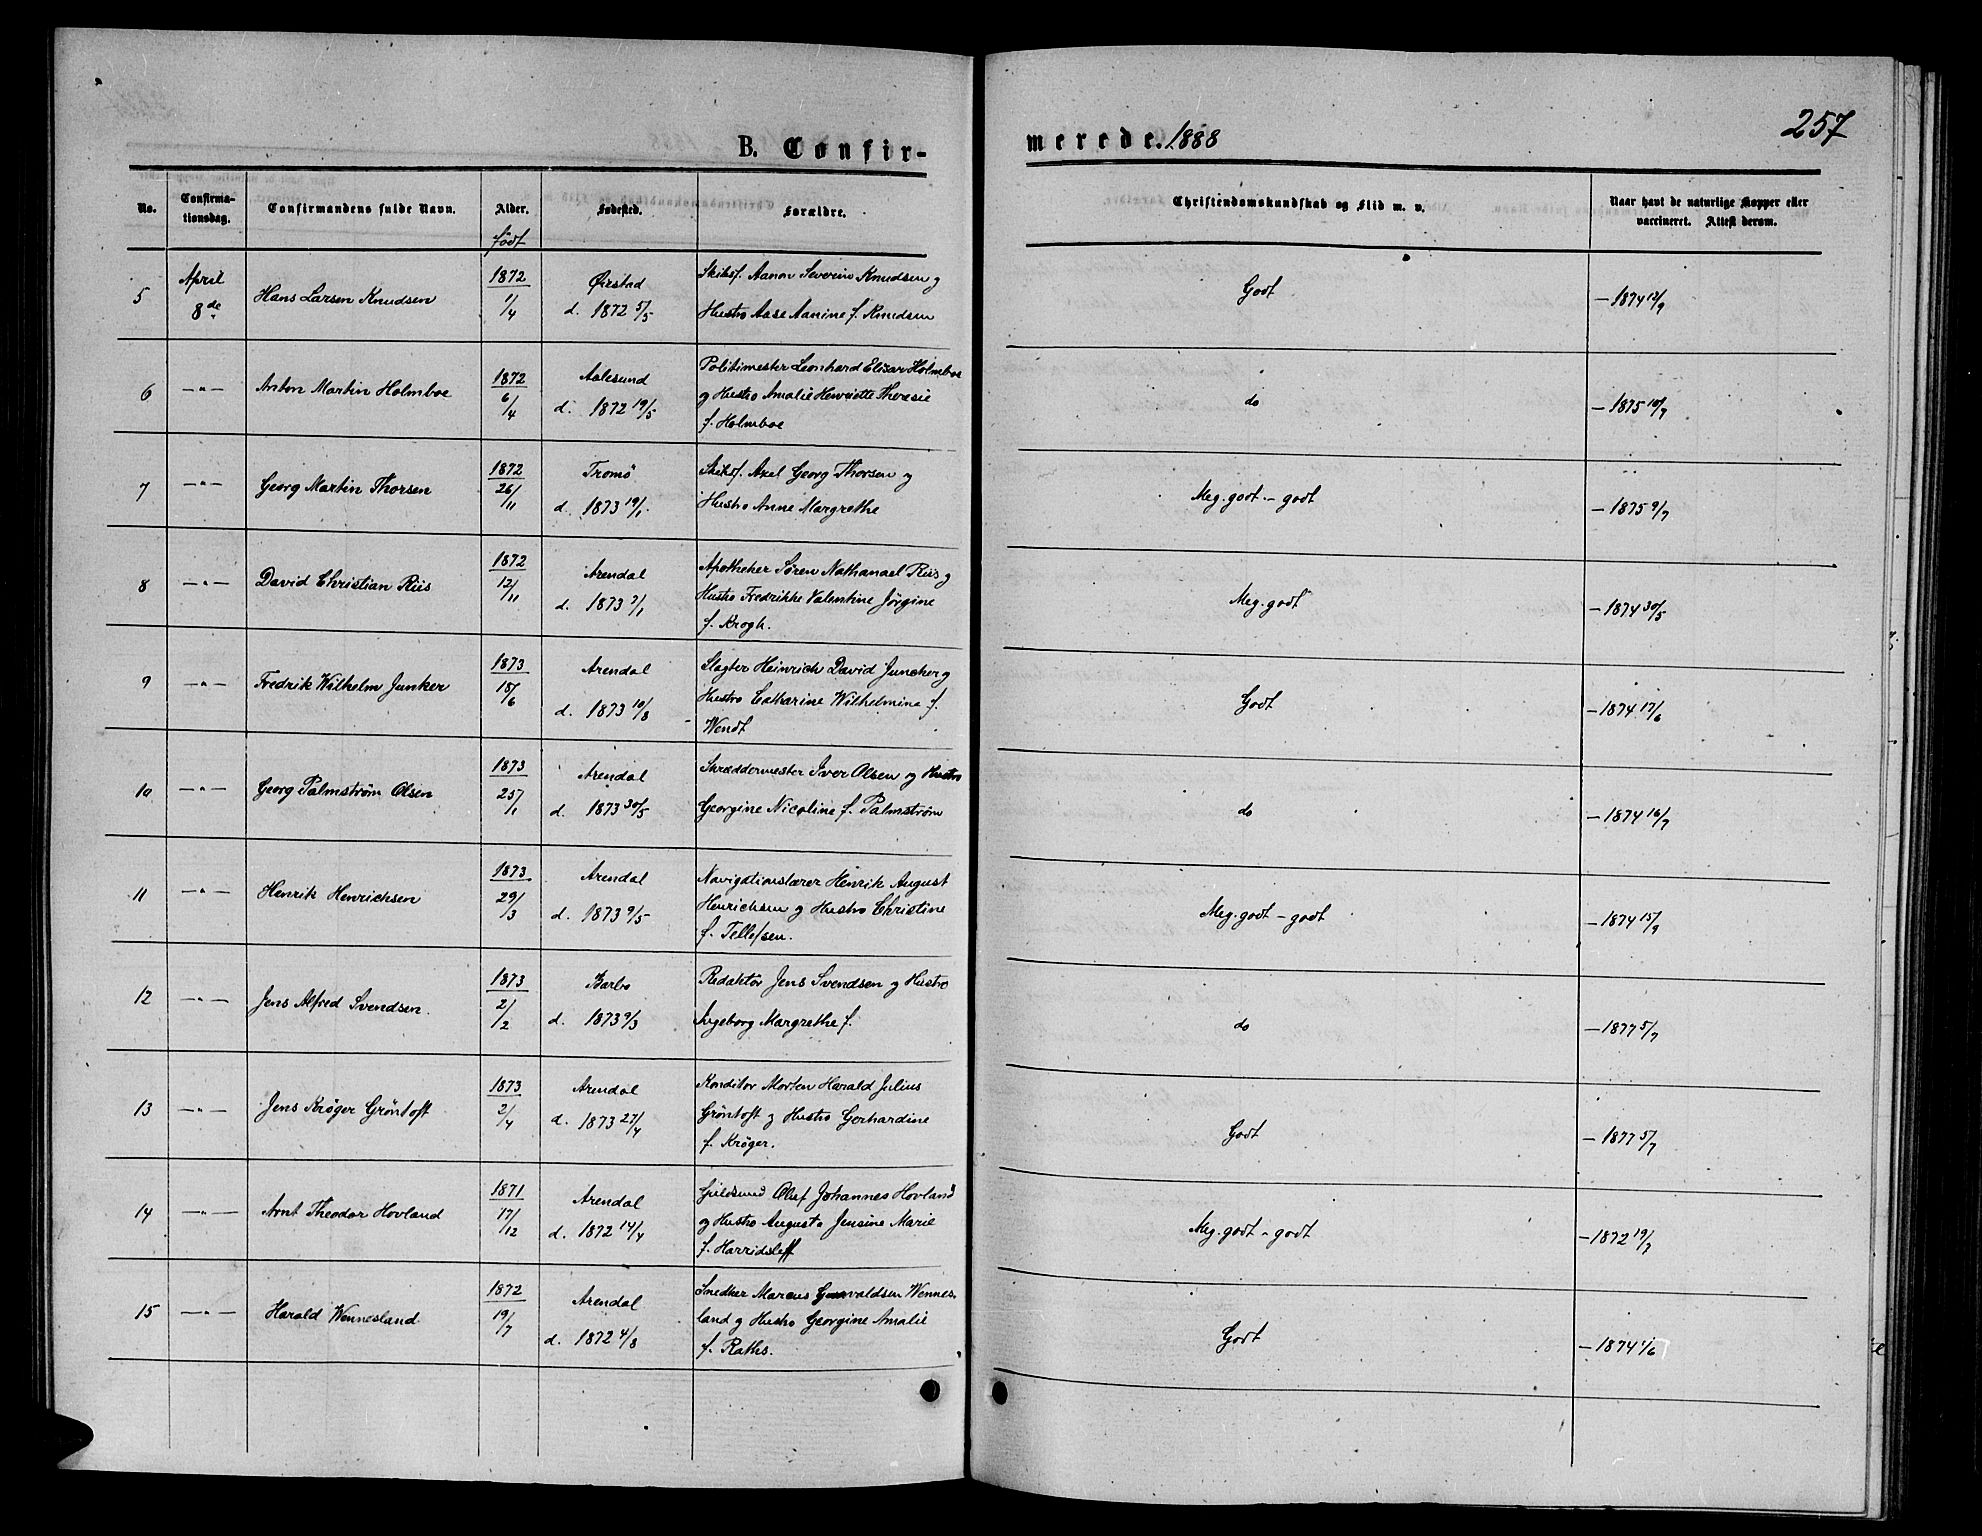 257
B. Confir-
merede. 1888
No.
Confirma-
tionsdag.
Confirmandens fulde Navn.
Alder.
født
Fødested.
Forældre.
Christendomskundskab og Flid m. v.
Naar havt de naturlige Kopper eller
vaccineret. Attest derom.
5 April 8de Hans Larsen Knudsen 1872 11/4 Øirstad d. 1872 5/5
Skibsf. Aanon Severin Knudsen og
Hustro Aase Aanine f. Knudsen
Godt
- 1874 12/9
6 —"— Anton Martin Holmboe 1872 6/4 Aalesund d. 1872 19/5
Politimester Leonhard Elisar Holmboe
og Hustro Amalie Henriette Theresie
f. Holmboe
do
- 1875 10/7
7 —"— Georg Martin Thorsen 1872 26/11 Tromö d. 1873 19/1
Skibsf. Axel Georg Thorsen og
Hustro Anne Margrethe
Meg. godt - godt
- 1875 9/7
8 —"— David Christian Riis 1872 12/11 Arendal d. 1873 7/1
Apotheker Søren Nathanael Riis og
Hustro Fredrikke Valentine Jørgine
f. Krogh.
Meg. godt
- 1874 30/5
9 —"— Fredrik Wilhelm Junker 1873 15/6 Arendal d. 1873 10/8
Slagter Heinrich David Juncker og
Hustro Catharine Wilhelmine f.
Wendt
Godt
- 1874 17/6
10 —"— Georg Palmström Olsen 1873 25/1 Arendal d. 1873 30/5
Skræddermester Iver Olsen og Hustro
Georgine Nicoline f. Palmström
do
- 1874 16/7
11 —"— Henrik Henrichsen 1873 29/3 Arendal d. 1873 9/5
Navigationslærer Henrik August
Henrichsen og Hustro Christine
f. Tellefsen.
Meg. godt - godt
- 1874 15/9
12 —"— Jens Alfred Svendsen. 1873 2/2 Barbo d. 1873 9/3
Redaktør Jens Svendsen og Hustro
Ingeborg Margrethe f.
do
- 1877 5/7
13 —"— Jens Krøger Gröntoft 1873 2/4 Arendal d. 1873 27/4
Konditor Morten Harald Julius
Gröntoft og Hustro Gerhardine
f. Krøger.
Godt
- 1877 5/7
14 —"— Arnt Theodor Hovland 1871 17/12 Arendal d. 1872 14/4
Oluf Johannes Hovland
og Hustro Augusta Jensine Marie
f. Harridsleff
Meg. godt - godt
- 1872 19/7
15 —"— Harald Wennesland. 1872 19/7 Arendal d. 1872 4/8
Snedker Marcus Gunvaldsen Wennes-
land og Hustro Georgine Amalie
f. Raths.
Godt
- 1874 1/6